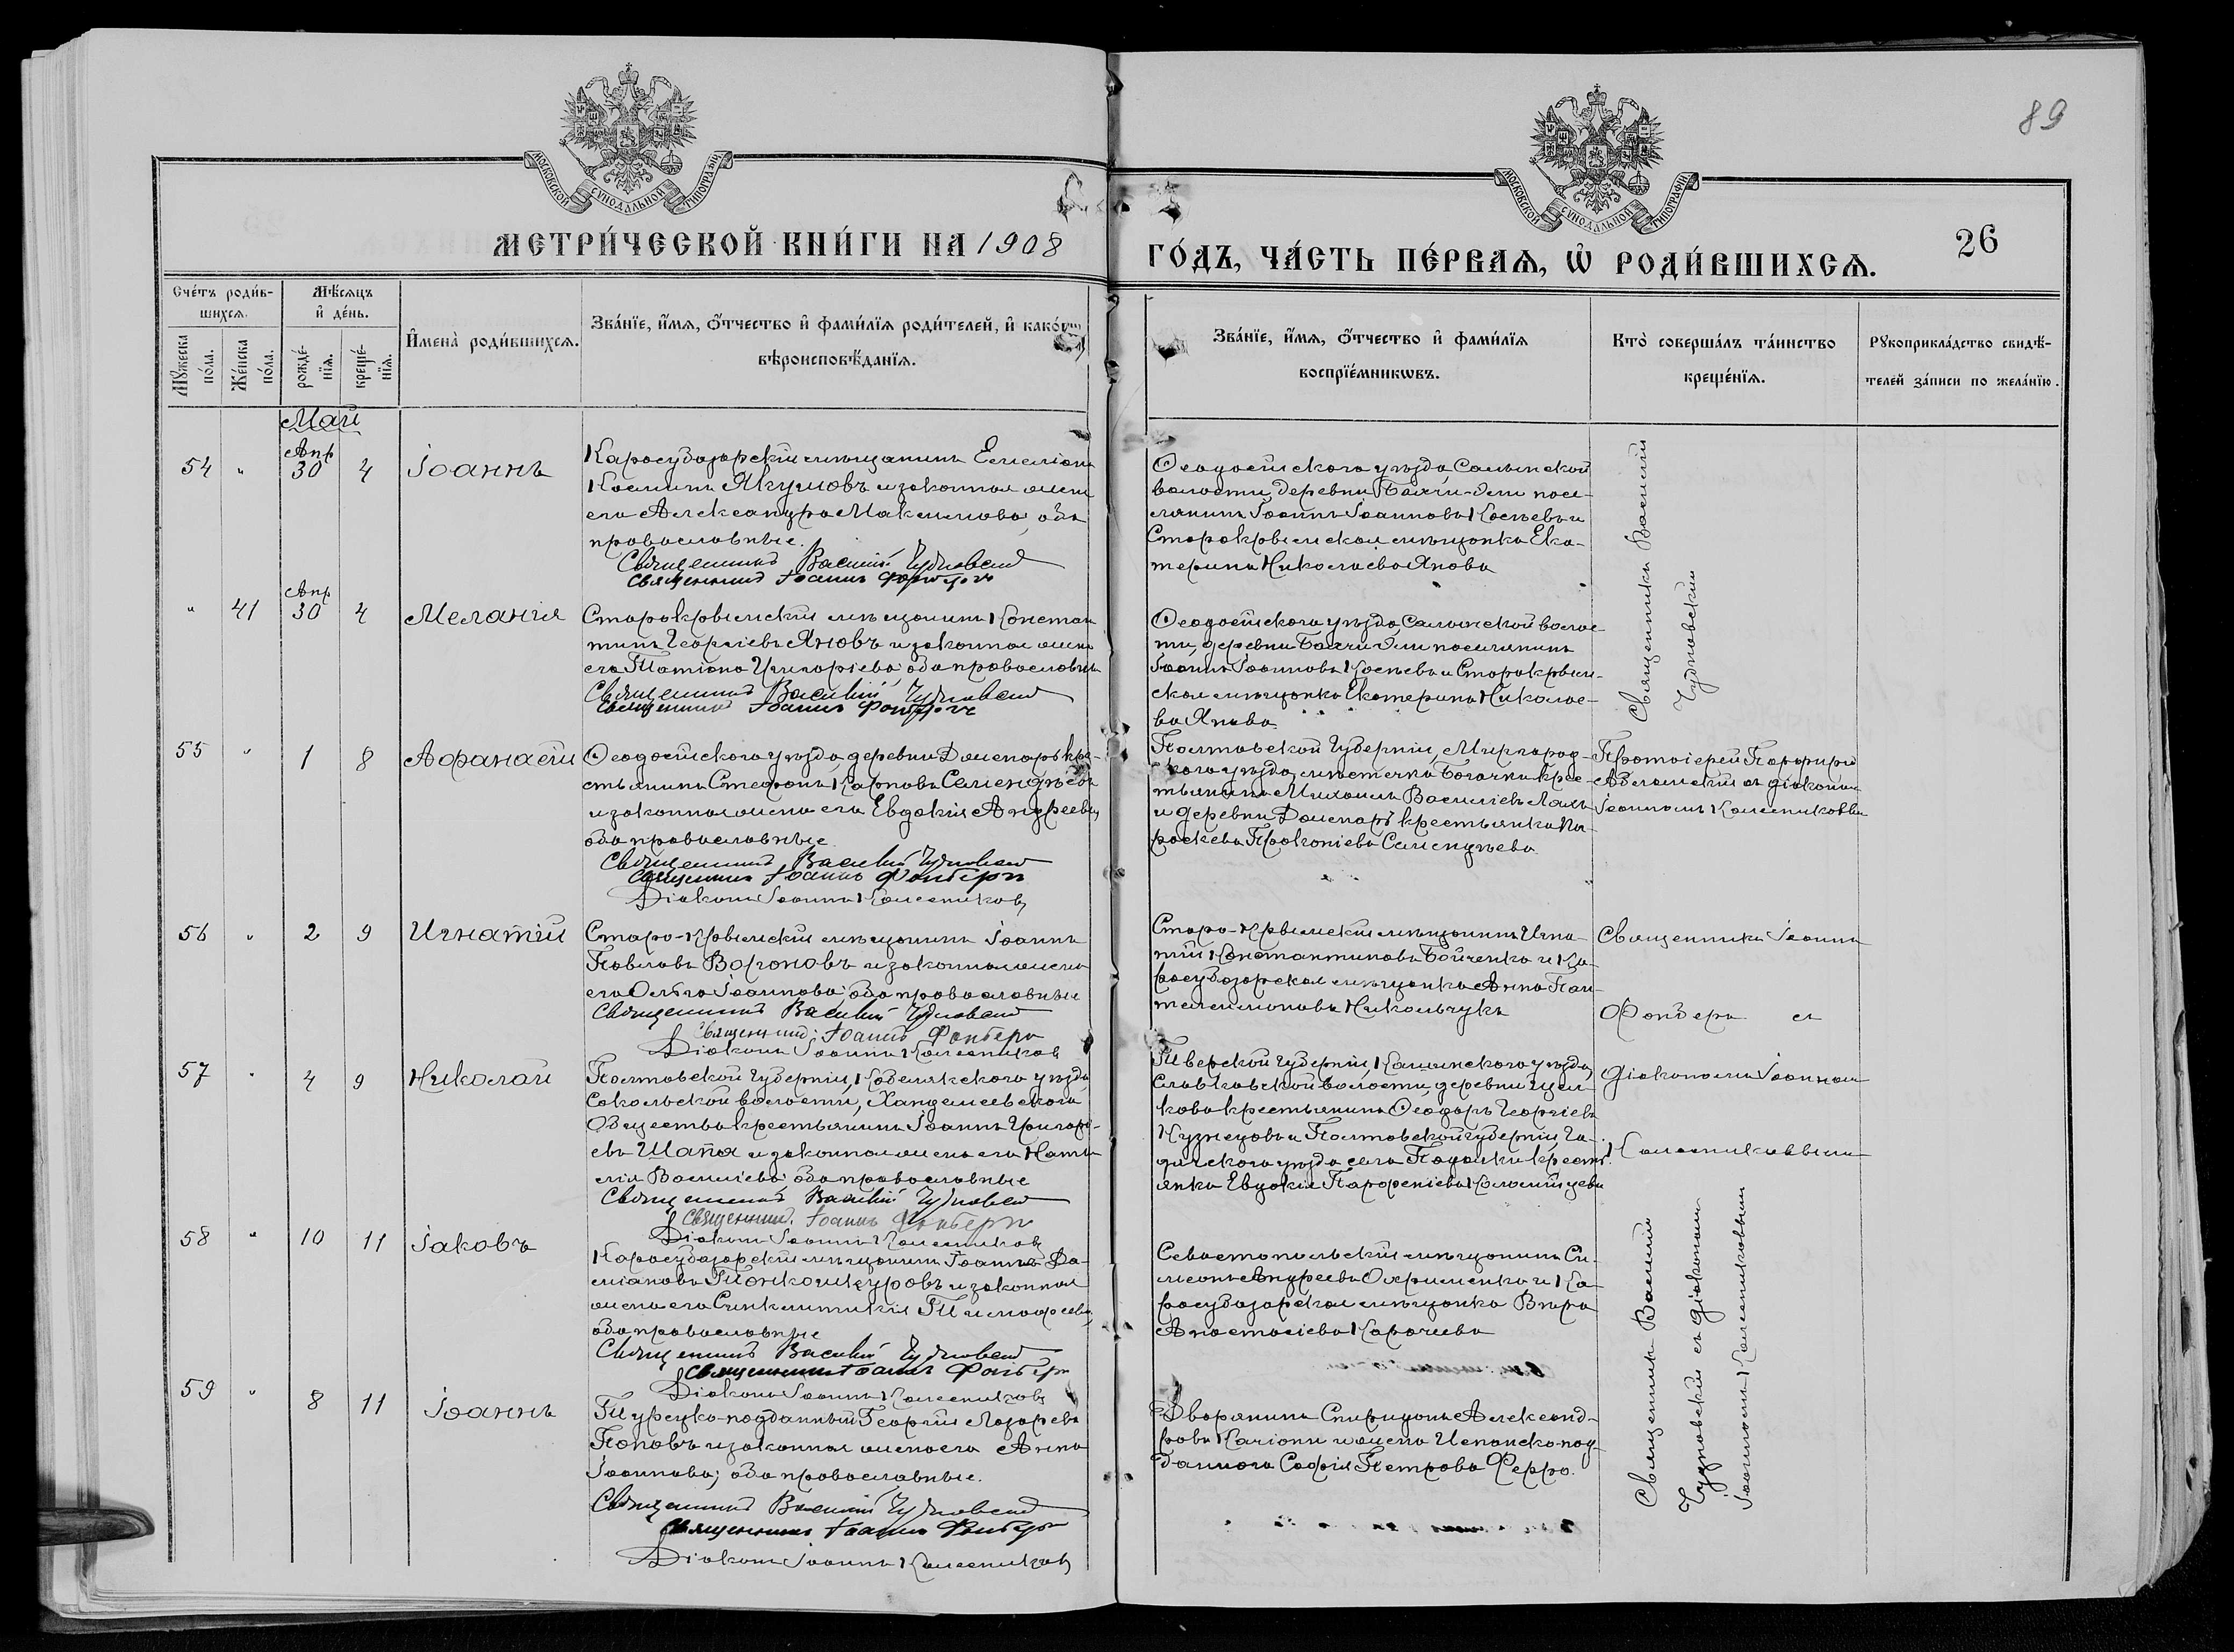 89
МОСКОВСКОЙ СѴНОДАЛЬНОЙ ТИПОГРАФІИ
МОСКОВСКОЙ СѴНОДАЛЬНОЙ ТИПОГРАФІИ
МЕТРИ́ЧЕСКОЙ КНИ́ГИ НА 1908
ГО́ДЪ, ЧА́СТЬ ПЕ́РВАѦ, Ѽ РОДИ́ВШИХСѦ.
26
Сче́тъ роди́в-
шихсѧ.
Мꙋ́жеска по́ла.
Же́нска по́ла.
Мѣ́сѧцъ
и҆ де́нь.
рожде́-
нїѧ.
креще́-
нїѧ.
И҆мена̀ роди́вшихсѧ.
Зва́нїе, и҆́мѧ, ѻ҆́тчество и҆ фами́лїѧ роди́телей, и҆
вѣроисповѣ́данїѧ.
Зва́нїе, и҆́мѧ, ѻ҆́тчество и҆ фами́лїѧ
воспрїе́мникѡвъ.
Кто̀ соверша́лъ та́инство
креще́нїѧ.
Рꙋкоприкла́дство свидѣ́-
телей за́писи по жела́нїю.
Май
54 " Апр 30 4 Іоаннъ
Карасубазарскій мѣщанинъ Емеліанъ
Косминъ Якумовъ и законная жена
его Александра Максимова, оба
православные.
Священникъ Василій Чудновскій
Священникъ Іоаннъ Фондерг
Ѳеодосійскаго уѣзда Салынской
волости, деревни Бахчи-Эли посе-
лянинъ Іоаннъ Іоанновъ Косьевъ и
Старокрымская мѣщанка Ека-
терина Николаева Янова
Священникъ Василій
Чудновскій
" 41 Апр 30 4 Меланія
Старокрымскій мѣщанинъ Констан
тинъ Георгіевъ Яновъ и законная жена
его Татіана Григоріева, оба православны
Священникъ Василій Чудновскій
Священникъ Іоаннъ
Ѳеодосійскаго уѣзда Салынской волос-
ти, деревни Бахчи Эли поселянинъ
Іоаннъ Іоанновъ Косьевъ и Старокрым-
ская мѣщанка Екатерина Николае-
ва Янова
55 " 1 8 Аѳанасій
Ѳеодосійскаго уѣзда деревни кре-
стьянинъ Стефанъ Карповъ Селендѣевъ
и законная жена его Евдокія Андреева,
оба православные
Священникъ Василій Чудновскій
Священникъ Іоаннъ Фонберг
Діаконъ Іоаннъ Колесниковъ
Полтавской Губерніи, Миргород-
скаго уѣзда, мѣстечка Богачки крес-
тьянинъ Михаилъ Василіевъ
и деревни крестьянка Па-
раскева Прокопіева Селендѣева
Протоіерей Порфирій
съ діакономъ
Іоанномъ Колесниковым
56 " 2 9 Игнатій
Старо-Крымскій мѣщанинъ Іоаннъ
Павловъ Вороновъ и законная жена
его Ольга Іоаннова; оба православные
Священникъ Василій Чудновскій
Священникъ Іоаннъ Фонберг
Діаконъ Іоаннъ Колесниковъ
Старо-Крымскій мѣщанинъ Игна-
тій Константиновъ Бойченко и Ка-
расубазарская мѣщанка Анна Пан-
телеимонова Никольчукъ
Священникъ Іоаннъ
Фондерг съ
57 " 4 9 Николай
Полтавской Губерніи, Кобелякскаго уѣзда
Сокольской волости,
Общества крестьянинъ Іоаннъ Григорі-
евъ Шапа и законная жена его Ната
лія Василіева; оба православные
Священникъ Василій Чудновскій
Священникъ Іоаннъ Фонберг
Діаконъ Іоаннъ Колесниковъ
Тверской Губерніи, Кашинскаго уѣзда,
Славковской волости, деревни Щел-
ково крестьянинъ Ѳеодоръ Георгіевъ
Кузнецовъ и Полтавской губерніи Га-
дячскаго уѣзда села кресть
янка Евдокія Парѳеніева Коломійцева
діакономъ Іоанномъ
Колесниковымъ
58 " 10 11 Іаковъ
Карасубазарскій мѣщанинъ Іоаннъ Да-
міановъ Тонкошкуровъ и законная
жена его Синклитикія Тимоѳеева,
оба православные
Священникъ Василій Чудновскій
Священникъ Іоаннъ Фонберг
Діаконъ Іоаннъ Колесниковъ
Севастопольскій мѣщанинъ Си-
меонъ Андреевъ Охрименко и Ка-
расубазарская мѣщанка Вѣра
Анастасіева Карачева
Священникъ Василій
Чудновскій съ діакономъ
Іоанномъ Колесниковымъ
59 " 8 11 Іоаннъ
Турецко-подданный Георгій Лазаревъ
Поповъ и законная жена его Анна
Іоаннова; оба православные.
Священникъ Василій Чудновскій
Священникъ Іоаннъ Фонберг
Діаконъ Іоаннъ Колесниковъ
Дворянинъ Спиридонъ Александ-
ровъ и жена Испанско-под-
даннаго Софія Петрова Ферро.